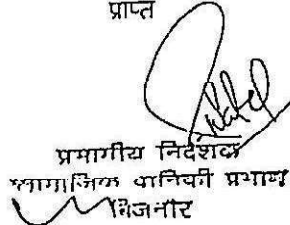 प्राप्त
प्रभागीय निदेशक
सामाजिक वानिकी प्रभाग
बिजनौर